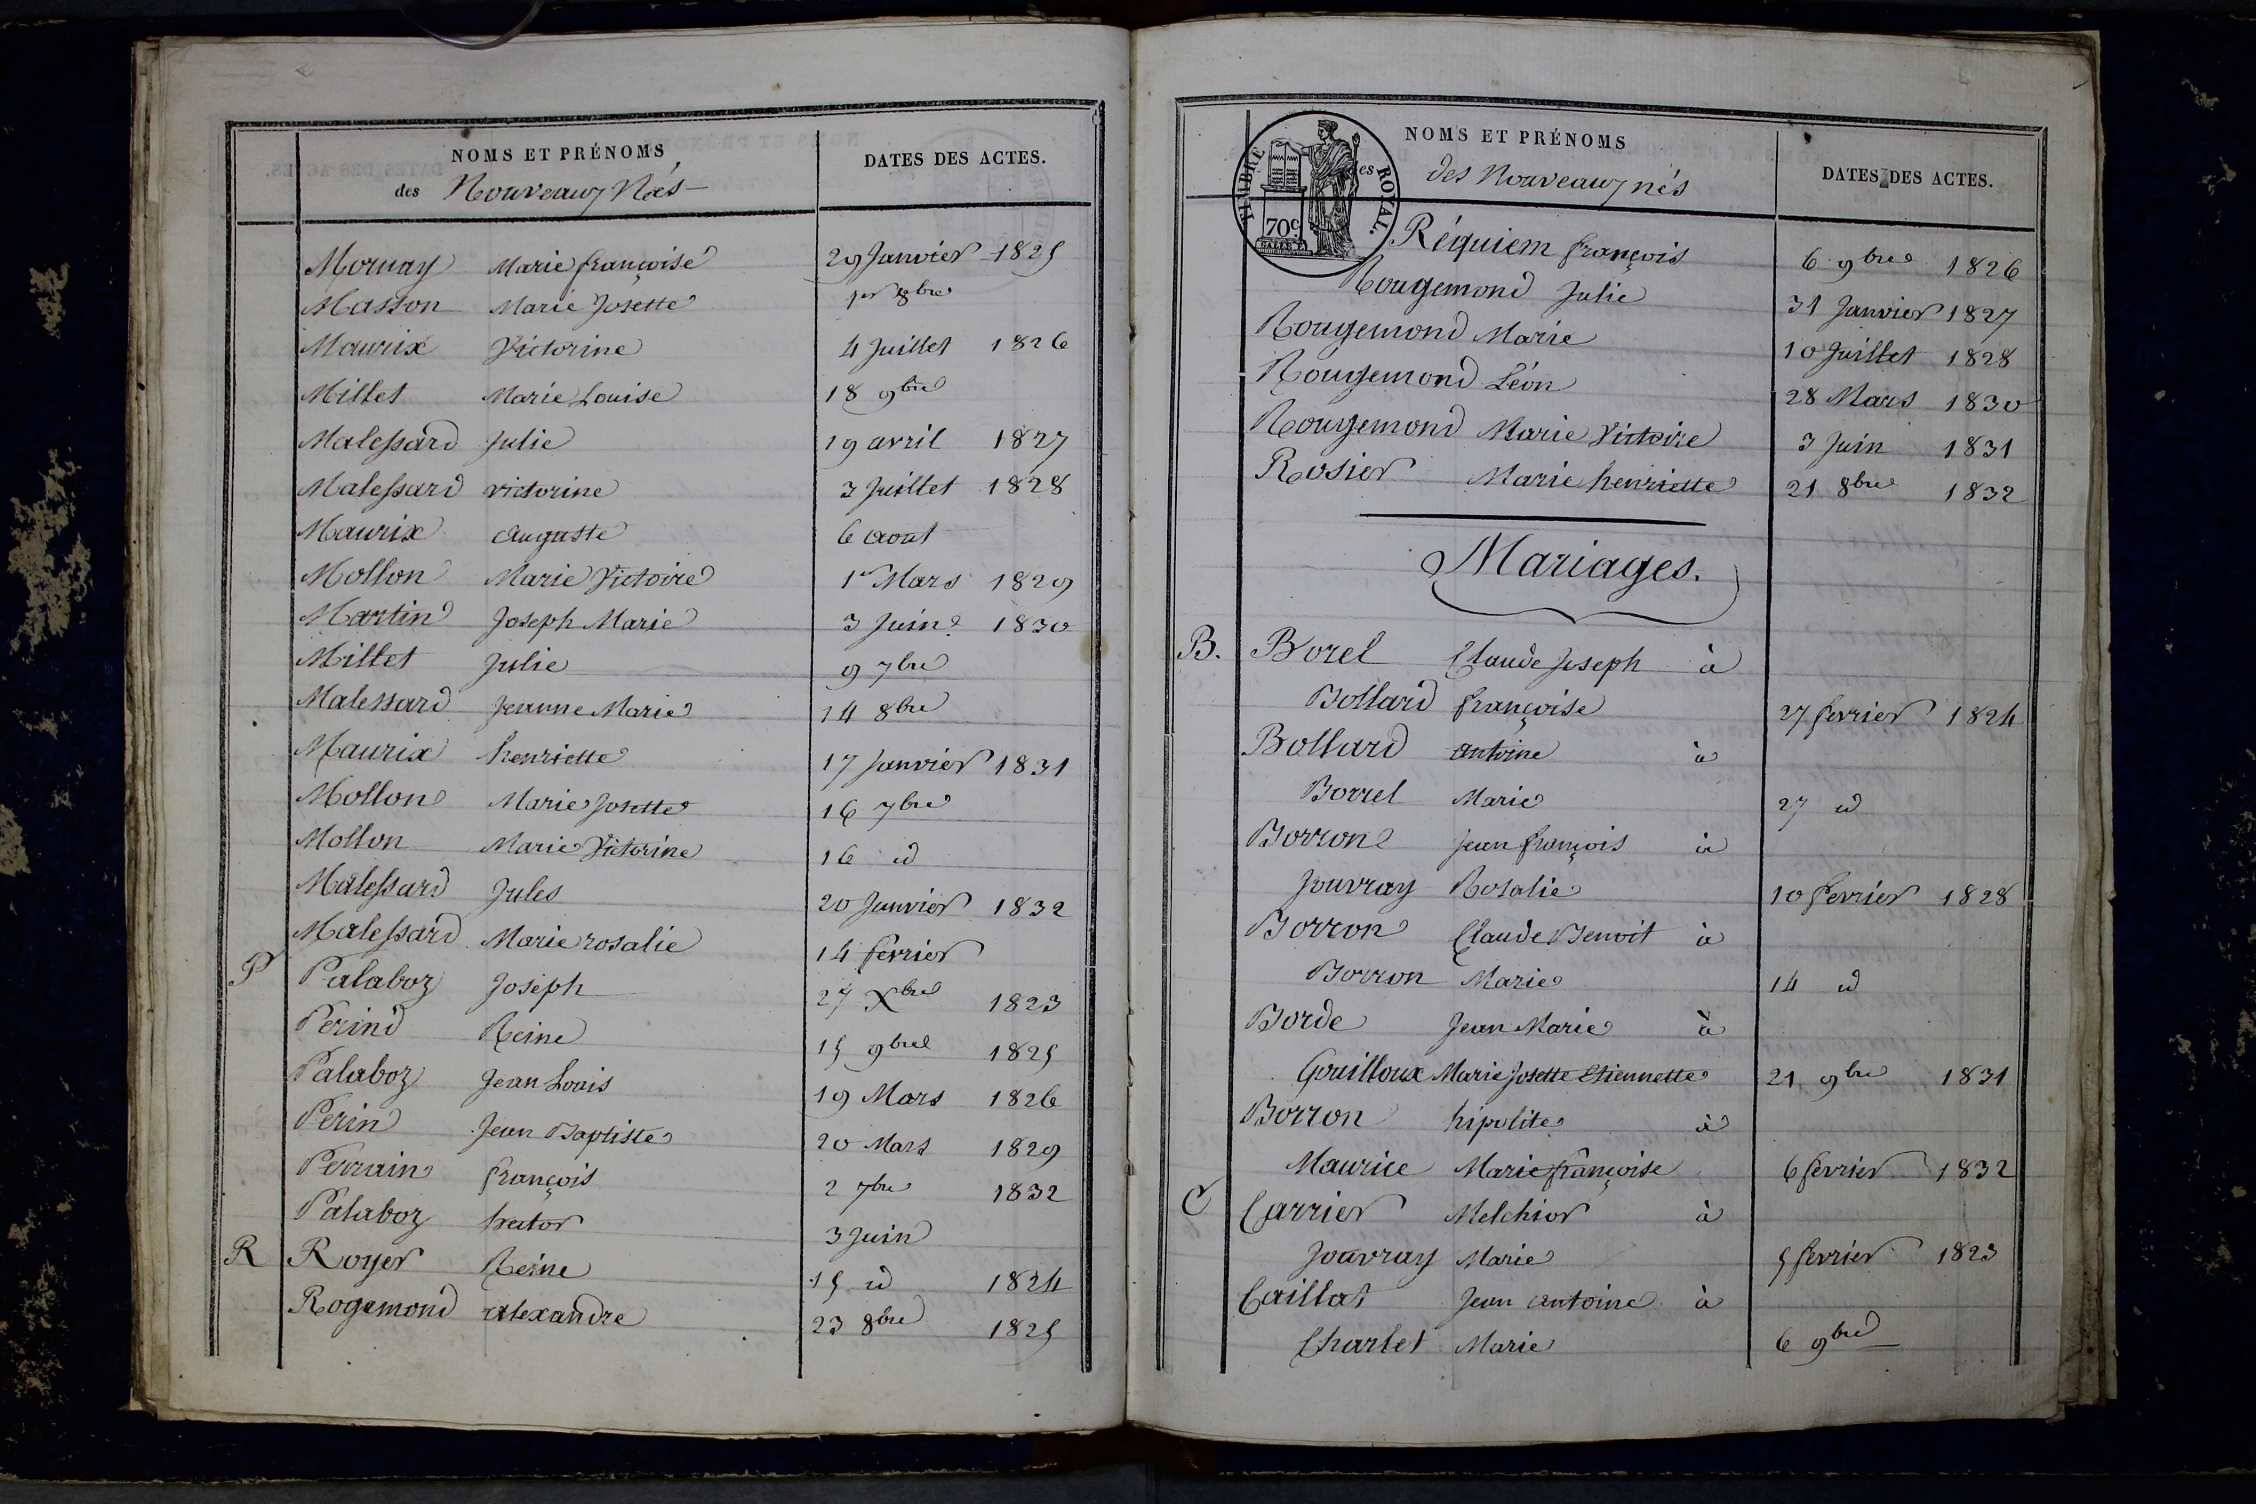 NOMS ET PRÉNOMS
des Nouveaux Nés
DATES DES ACTES.
Mornay Marie françoise 29 Janvier 1825
Masson Marie Josette 1er 8bre
Maurix Victorine 4 Juillet 1826
Millet Marie Louise 18 9bre
Malessard Julie 19 avril 1827
Malessard victorine 3 Juillet 1828
Maurix auguste 6 aout
Mollon Marie Victoire 1er Mars 1829
Martin Joseph Marie 3 Juin 1830
Millet Julie 9 7bre
Malessard Jeanne Marie 14 8bre
Maurix henriette 17 Janvier 1831
Mollon Marie Josette 16 7bre
Mollon Marie Victorine 16 id
Malessard Jules 20 Janvier 1832
Malessard Marie rosalie 14 fevrier
P Palaboz Joseph 27 Xbre 1823
Perin Reine 15 9bre 1825
Palaboz Jean Louis 19 Mars 1826
Perin Jean Baptiste 20 Mars 1829
Perrain françois 2 7bre 1832
Palaboz hector 3 Juin
R Royer Reine 15 id 1824
Rogemond alexandre 23 8bre 1825
TIMBRE ROYAL.
70c.
NOMS ET PRÉNOMS
des Nouveaux nés
DATES DES ACTES.
Réquiem françois 6 9bre 1826
Rougemond Julie 31 Janvier 1827
Rougemond Marie 10 Juillet 1828
Rougemond Léon 28 Mars 1830
Rougemond Marie Victoire 3 Juin 1831
Rosier Marie henriette 21 8bre 1832
Mariages.
B. Borel Claude Joseph à
Bollard françoise 27 fevrier 1824
Bollard antoine à
Borrel Marie 27 id
Borron Jean françois à
Jouvray Rosalie 10 fevrier 1828
Borron Claude Benoit à
Borron Marie 14 id
Borde Jean Marie à
Gouilloux Marie Josette Etiennette 21 9bre 1831
Borron hipolite à
Maurice Marie françoise 6 fevrier 1832
C Carrier Melchior à
Jouvray Marie 5 fevrier 1823
Caillat Jean antoine à
Charlet Marie 6 9bre